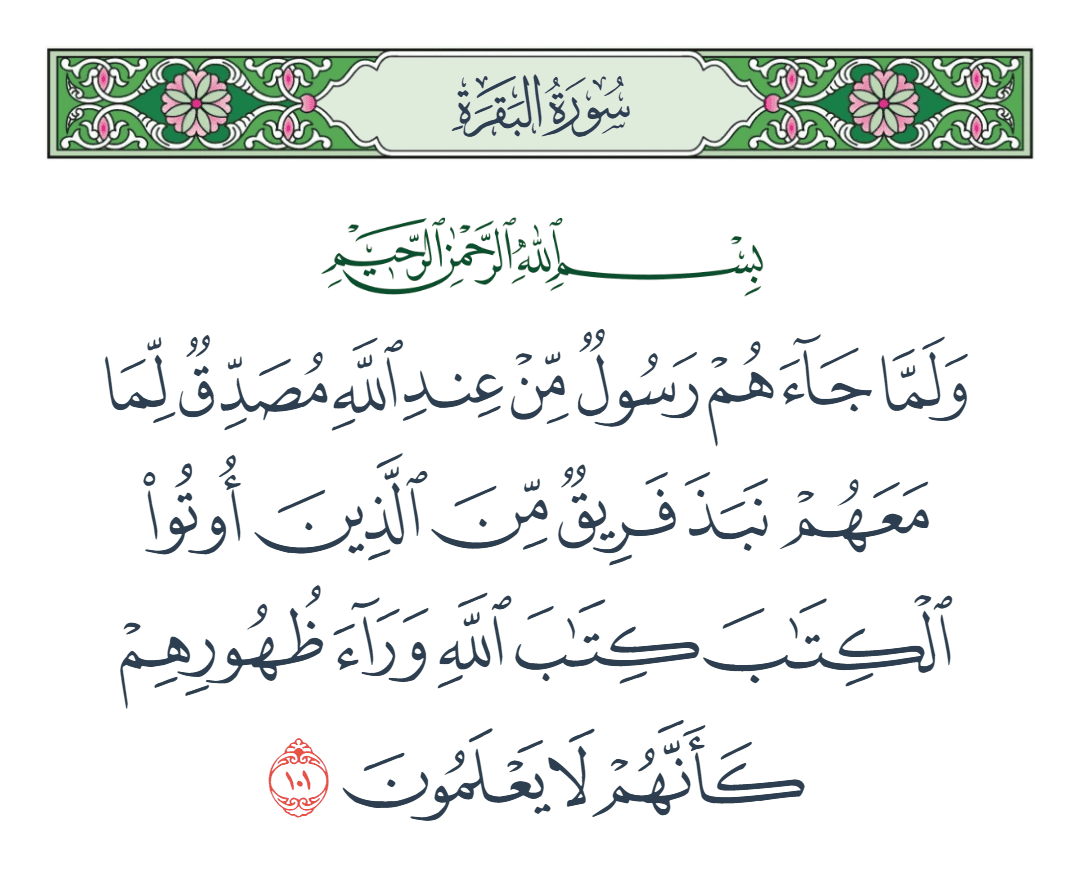 سُورَةُ البَقَرَةِ
بِسْمِ ٱللَّهِ ٱلرَّحْمَٰنِ ٱلرَّحِيمِ
وَلَمَّا جَآءَهُمْ رَسُولٌ مِّنْ عِندِ ٱللَّهِ مُصَدِّقٌ لِّمَا
مَعَهُمْ نَبَذَ فَرِيقٌ مِّنَ ٱلَّذِينَ أُوتُوا۟
ٱلْكِتَٰبَ كِتَٰبَ ٱللَّهِ وَرَآءَ ظُهُورِهِمْ
كَأَنَّهُمْ لَا يَعْلَمُونَ ١٠١